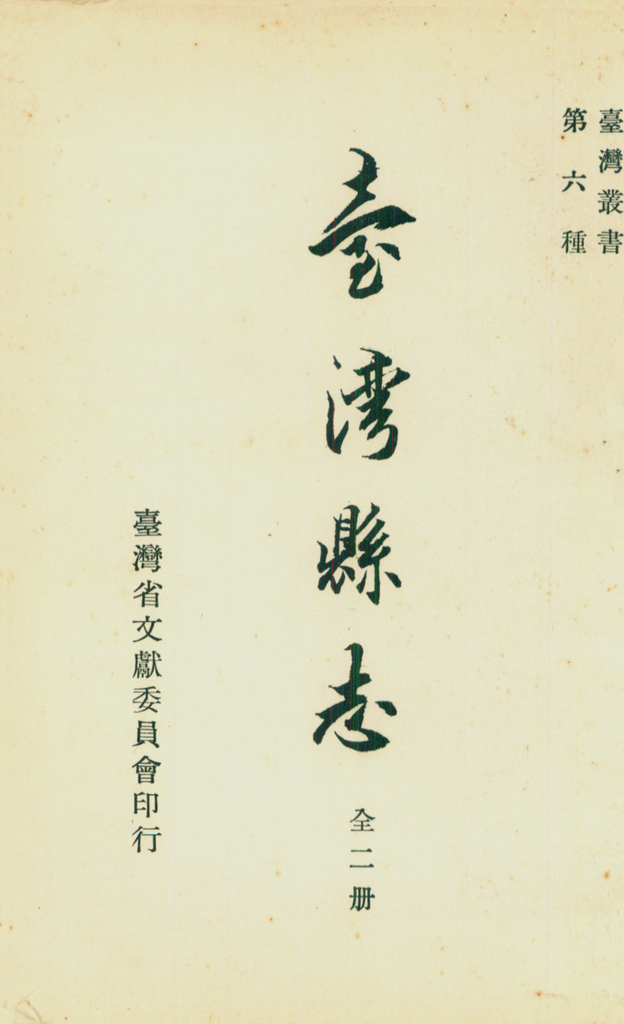 臺灣叢書
第六種
臺灣縣志
全二册
臺灣省文獻委員會印行